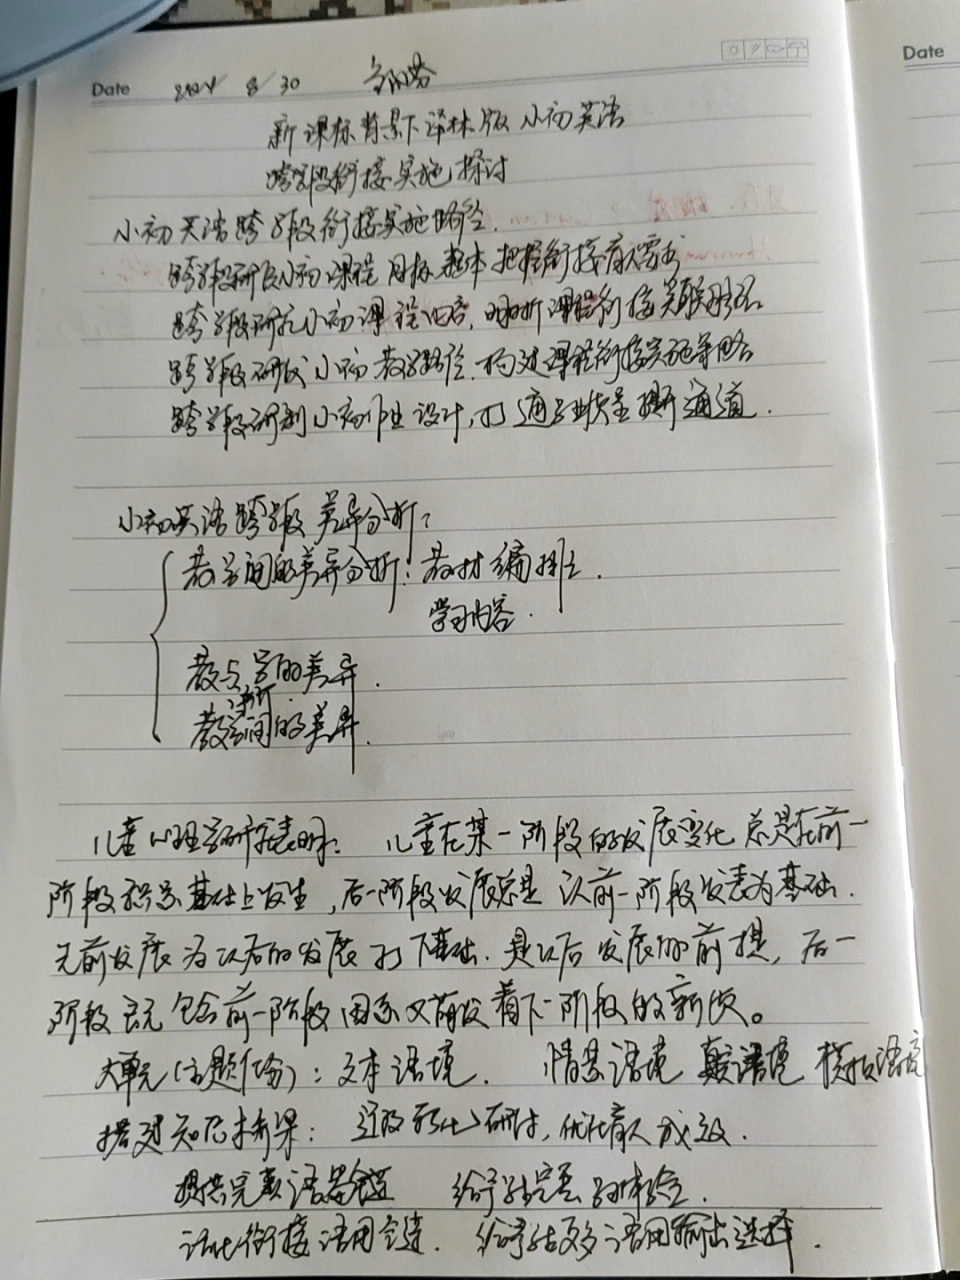 Date 2024/ 8/30
Date
新课标背景下译林版小初英语
跨学段衔接实施探讨
小初英语跨学段衔接实施路径.
跨学段研 小初课程目标 整体把握衔接育人需求
跨学段研 小初课程内容, 明晰课程衔接关联
跨学段研 小初教学路径, 构建课程衔接实施策略
跨学段研制小初作业设计, 打通学业质量提升通道.
小初英语跨学段差异分析:
教学间的差异分析: 教材编排.
学习内容.
教与学的差异.
教学间的差异.
儿童心理学研究表明: 儿童在某一阶段的发展变化总是在前一
阶段 基础上发生, 后一阶段发展总是以前一阶段发展为基础.
先前发展为以后的发展打下基础. 是以后发展的前提, 后一
阶段既包含前一阶段因素又萌发着下一阶段的新质。
大单元(主题 ): 文本语境. 情景语境 真实语境 模拟语境
搭建知识框架: 研讨, 优化育人成效.
提供完整语 给予学生完整 体验.
衔接语用 . 给予学生更多语用输出选择.